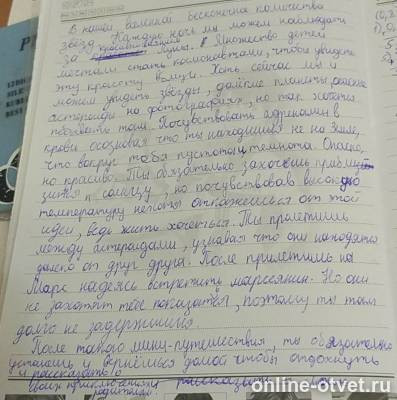 В нашей вселенной бесконечно количество
звёзд. Каждую ночь мы можем наблюдать
за красивейшей Луны. Множество детей
мечтали стать космонавтами, чтобы увидеть
эту красоту вживую. Хоть сейчас мы и
можем увидеть звёзды, далёкие планеты,
астероиды на фотографиях, но так хотели
побывать там. Почувствовать адреналин в
крови осознавая что ты находишься не на Земле,
что вокруг тебя пустота и темнота. Опасно,
но красиво. Ты обязательно захочешь приблиз
зится к солнцу, но почувствовав высокую
температуру откажешься от этой
идеи, ведь жить хочется. Ты пролетишь
между астероидами, узнавая что они находятся
далеко от друг друга. После прилетишь на
Марс надеясь встретить марсиянин. Но они
не захотят тебе показатся, поэтому ты там
долго не задержишься.
После такого мини-путешествия, ты обязательно
устанешь и вернёшься домой чтобы отдохнуть
и рассказать о
своих приключениях
родителям.
online-otvet.ru